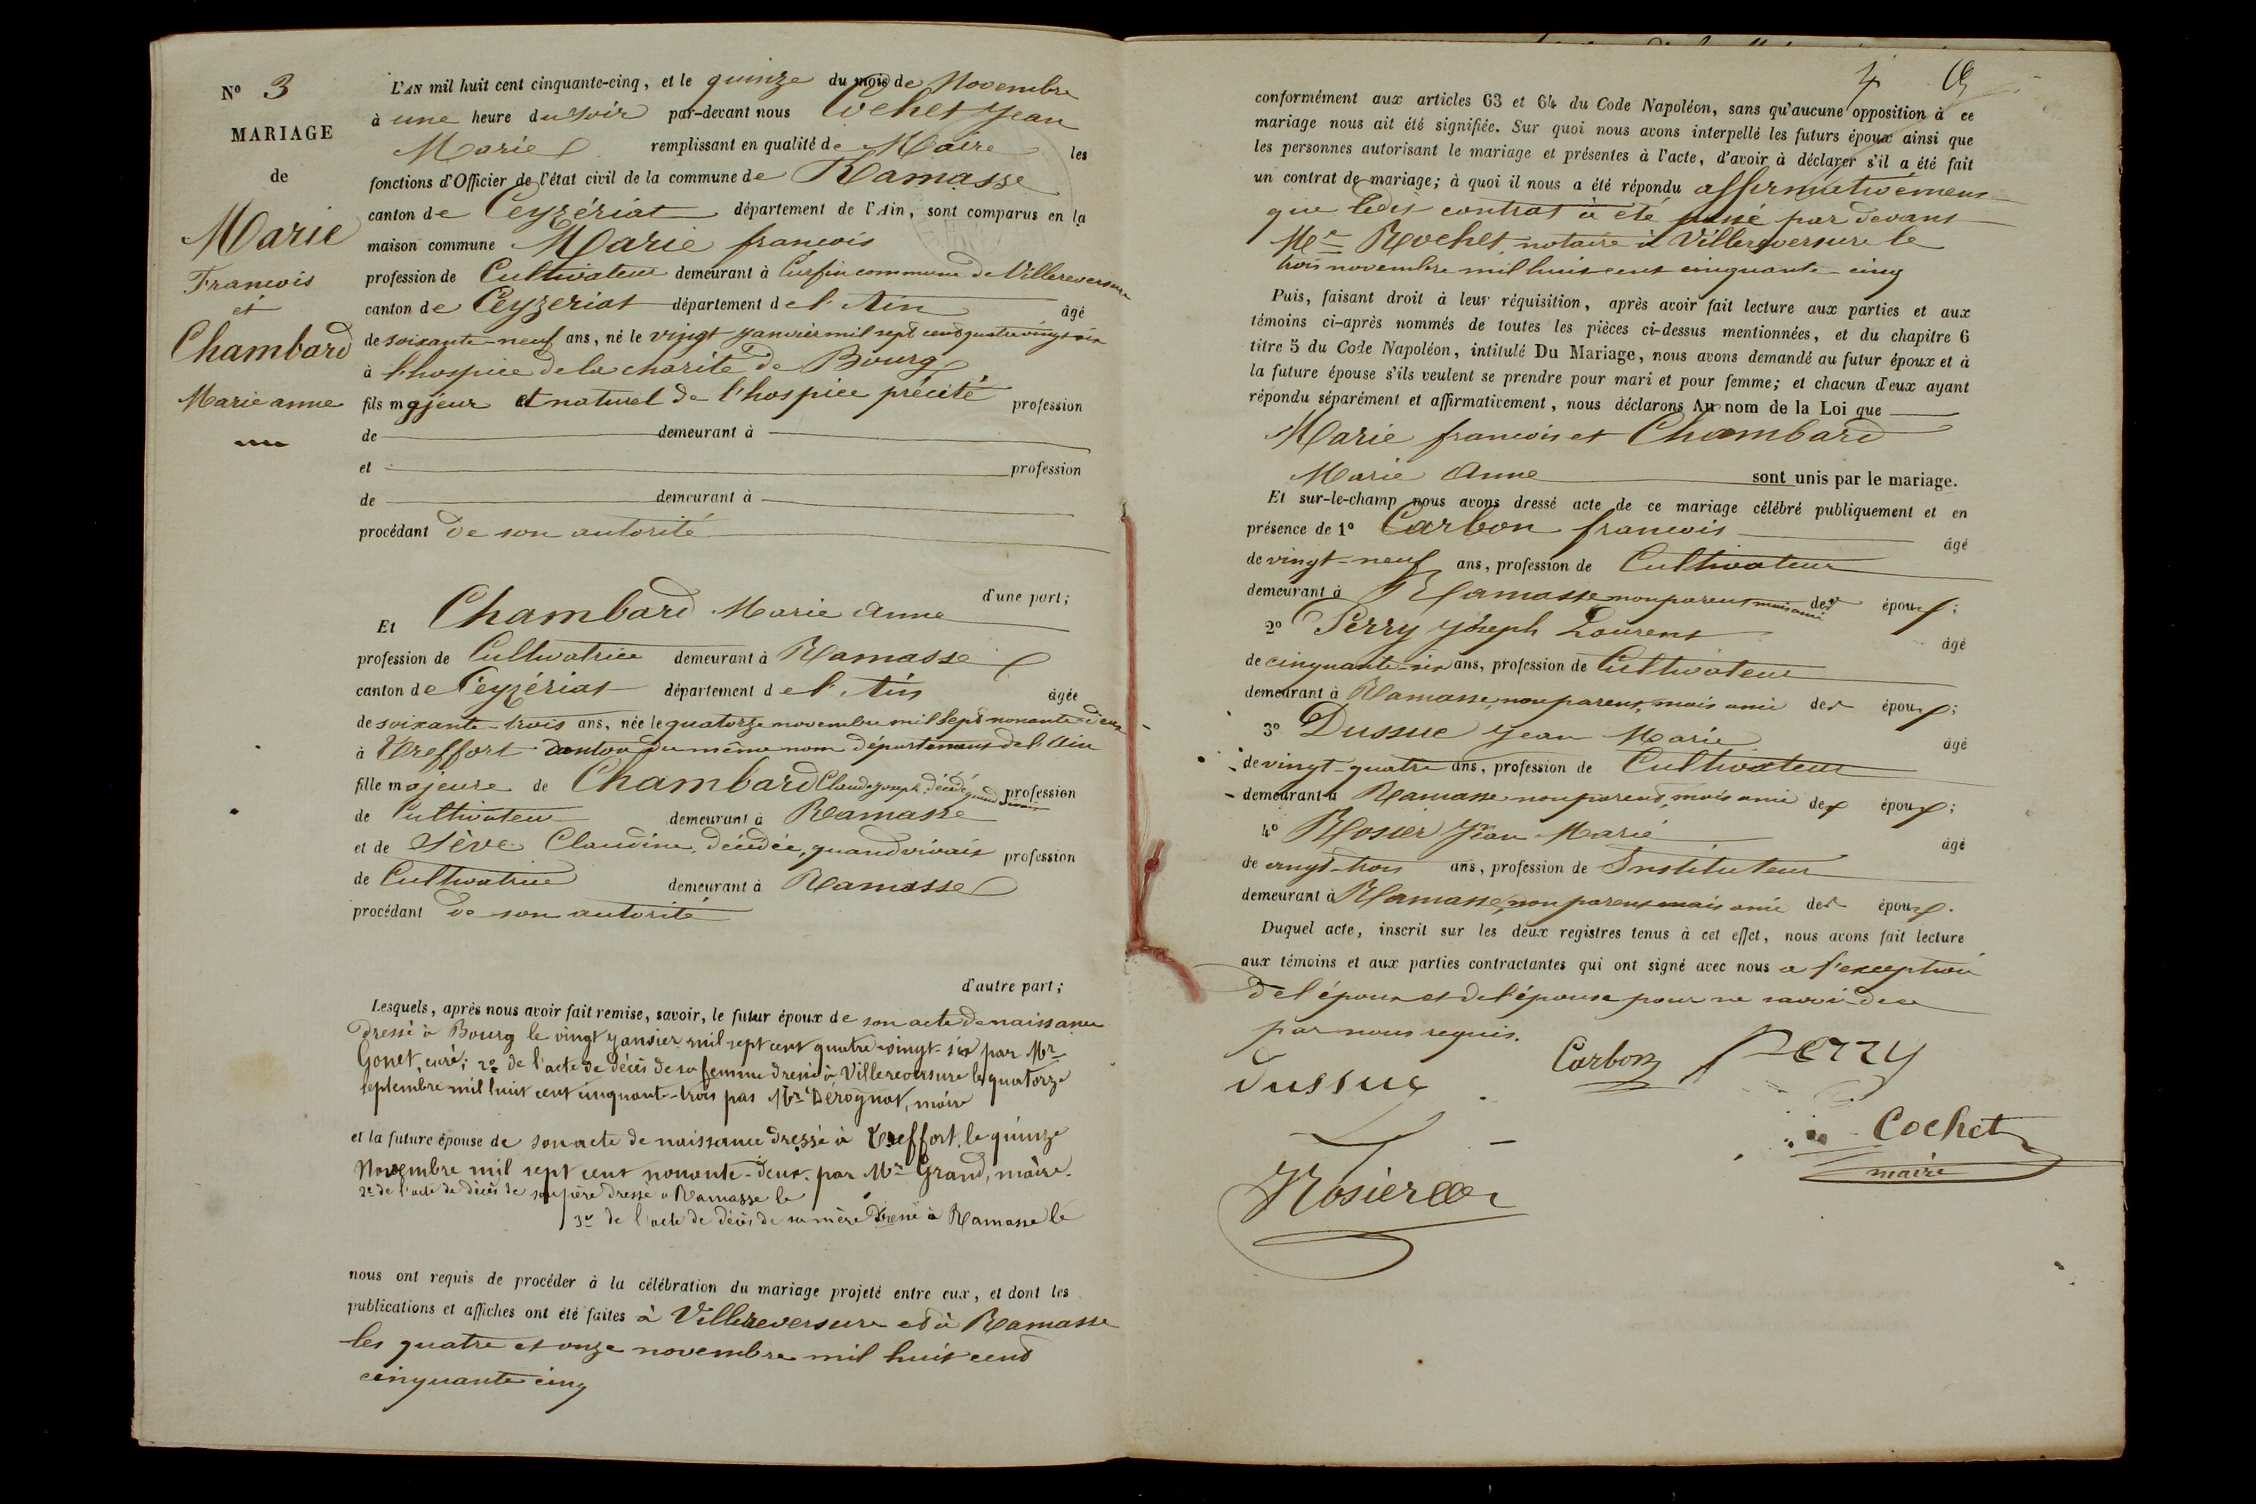 N° 3
MARIAGE
de
Marie
François
et
Chambard
Marie anne
L'AN mil huit cent cinquante-cinq, et le quinze du mois de Novembre
à une heure du soir par-devant nous Cochet Jean
Marie remplissant en qualité de Maire les
fonctions d'Officier de l'état civil de la commune de Ramasse
canton de Ceyzériat département de l'Ain, sont comparus en la
maison commune Marie françois
profession de Cultivateur demeurant à Cuisfin commune de Villereversure
canton de Ceyzeriat département de l'Ain âgé
de soixante-neuf ans, né le vingt janvier mil sept cent quatre vingt six
à l'hospice de la charité de Bourg
fils majeur et naturel de l'hospice précité profession
de demeurant à
et profession
de demeurant à
procédant de son autorité
d'une part;
Et Chambard Marie Anne
profession de Cultivatrice demeurant à Ramasse
canton de Ceyzériat département de l'Ain âgée
de soixante-trois ans, née le quatorze novembre mil sept nonante deux
à Treffort canton du même nom département de l'Ain
fille majeure de Chambard Claude joseph, décédé quand vivait profession
de Cultivateur demeurant à Ramasse
et de Sève Claudine, décédée, quand vivait profession
de Cultivatrice demeurant à Ramasse
procédant de son autorité
d'autre part;
Lesquels, après nous avoir fait remise, savoir, le futur époux de son acte de naissance
dressé à Bourg le vingt janvier mil sept cent quatre-vingt-six par Mr
Gonet, curé; 2° de l'acte de décès de sa femme dressé à Villereversure le quatorze
septembre mil huit cent cinquante-trois par Mr Derognat, maire
et la future épouse de son acte de naissance dressé à Treffort le quinze
Novembre mil sept cent nonante-deux par Mr Grand, maire.
2° de l'acte de décès de son père dressé à Ramasse le
3° de l'acte de décès de sa mère dressé à Ramasse le
nous ont requis de procéder à la célébration du mariage projeté entre eux, et dont les
publications et affiches ont été faites à Villereversure et à Ramasse
les quatre et onze novembre mil huit cent
cinquante cinq
conformément aux articles 63 et 64 du Code Napoléon, sans qu'aucune opposition à ce
mariage nous ait été signifiée. Sur quoi nous avons interpellé les futurs époux ainsi que
les personnes autorisant le mariage et présentes à l'acte, d'avoir à déclarer s'il a été fait
un contrat de mariage; à quoi il nous a été répondu affirmativement
que ledit contrat a été passé par devant
Me Rochet, notaire à Villereversure le
trois novembre mil huit cent cinquante-cinq
Puis, faisant droit à leur réquisition, après avoir fait lecture aux parties et aux
témoins ci-après nommés de toutes les pièces ci-dessus mentionnées, et du chapitre 6
titre 5 du Code Napoléon, intitulé Du Mariage, nous avons demandé au futur époux et à
la future épouse s'ils veulent se prendre pour mari et pour femme; et chacun d'eux ayant
répondu séparément et affirmativement, nous déclarons Au nom de la Loi que
Marie françois et Chambard
Marie Anne sont unis par le mariage.
Et sur-le-champ nous avons dressé acte de ce mariage célébré publiquement et en
présence de 1° Carbon françois âgé
de vingt-neuf ans, profession de Cultivateur
demeurant à Ramasse non parent mais ami des époux;
2° Perry Joseph Laurent âgé
de cinquante-six ans, profession de Cultivateur
demeurant à Ramasse, non parent, mais ami des époux;
3° Dussuc Jean Marie âgé
de vingt-quatre ans, profession de Cultivateur
demeurant à Ramasse non parent, mais ami des époux;
4° Rosier Jean Marie âgé
de vingt-trois ans, profession de Instituteur
demeurant à Ramasse, non parent mais ami des époux.
Duquel acte, inscrit sur les deux registres tenus à cet effet, nous avons fait lecture
aux témoins et aux parties contractantes qui ont signé avec nous a l'exception
de l'époux et de l'épouse pour ne savoir de ce
par nous requis.
Carbon Perry
Dussuc
Cochet
maire
Rosier